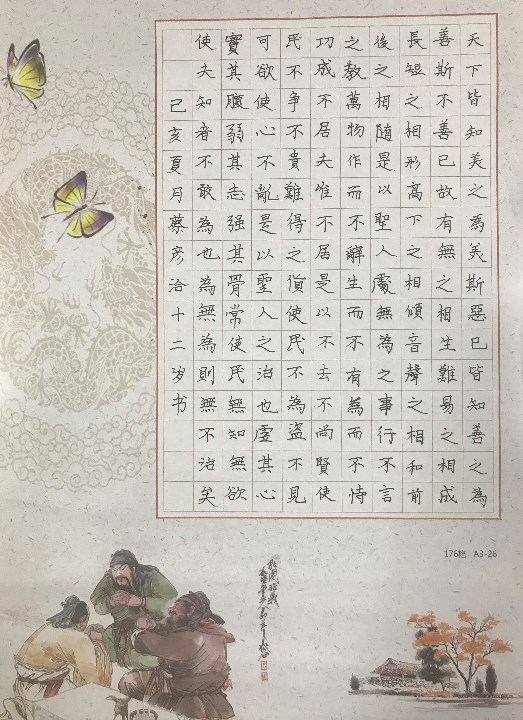 天下皆知美之爲美斯惡已皆知善之為
善斯不善已故有無之相生難易之相成
長短之相形高下之相傾音聲之相和前
後之相隨是以聖人處無為之事行不言
之教萬物作而不辭生而不有為而不恃
功成不居夫唯不居是以不去不尚賢使
民不争不貴難得之貨使民不為盜不見
可欲使心不亂是以聖人之治也虛其心
實其腹弱其志强其骨常使民無知無欲
使夫知者不敢為也為無為則無不治矣
己亥夏月蔡彦洽十二岁书
176格 A3-26